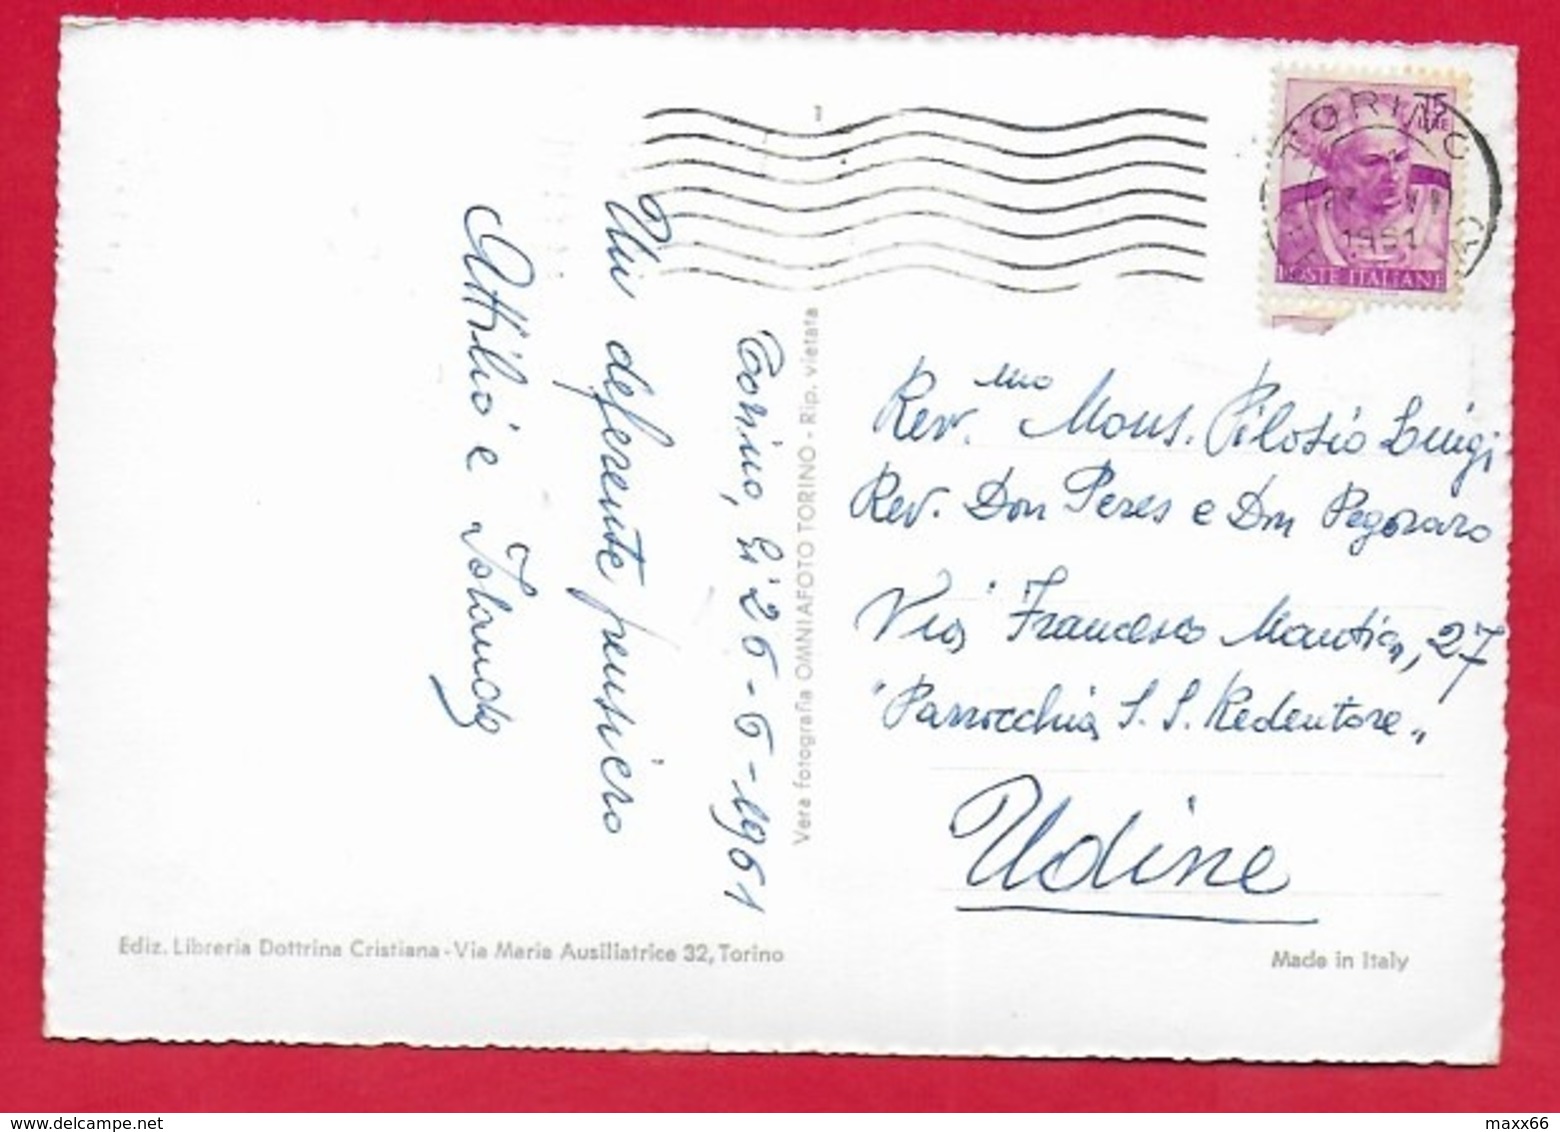 Torino, li 26-6-1961
Un deferente pensiero
Attilio e Iolanda
Vera fotografia OMNIAFOTO TORINO - Rip. vietata
Ediz. Libreria Dottrina Cristiana - Via Maria Ausiliatrice 32, Torino
TORINO
1961
LIRE
POSTE ITALIANE
Rev.mo Mons. Pilosio Luigi
Rev. Don Peres e Don Pegoraro
Via Francesco Mantica, 27
"Parrocchia S. S. Redentore"
Udine
Made in Italy
maxx66